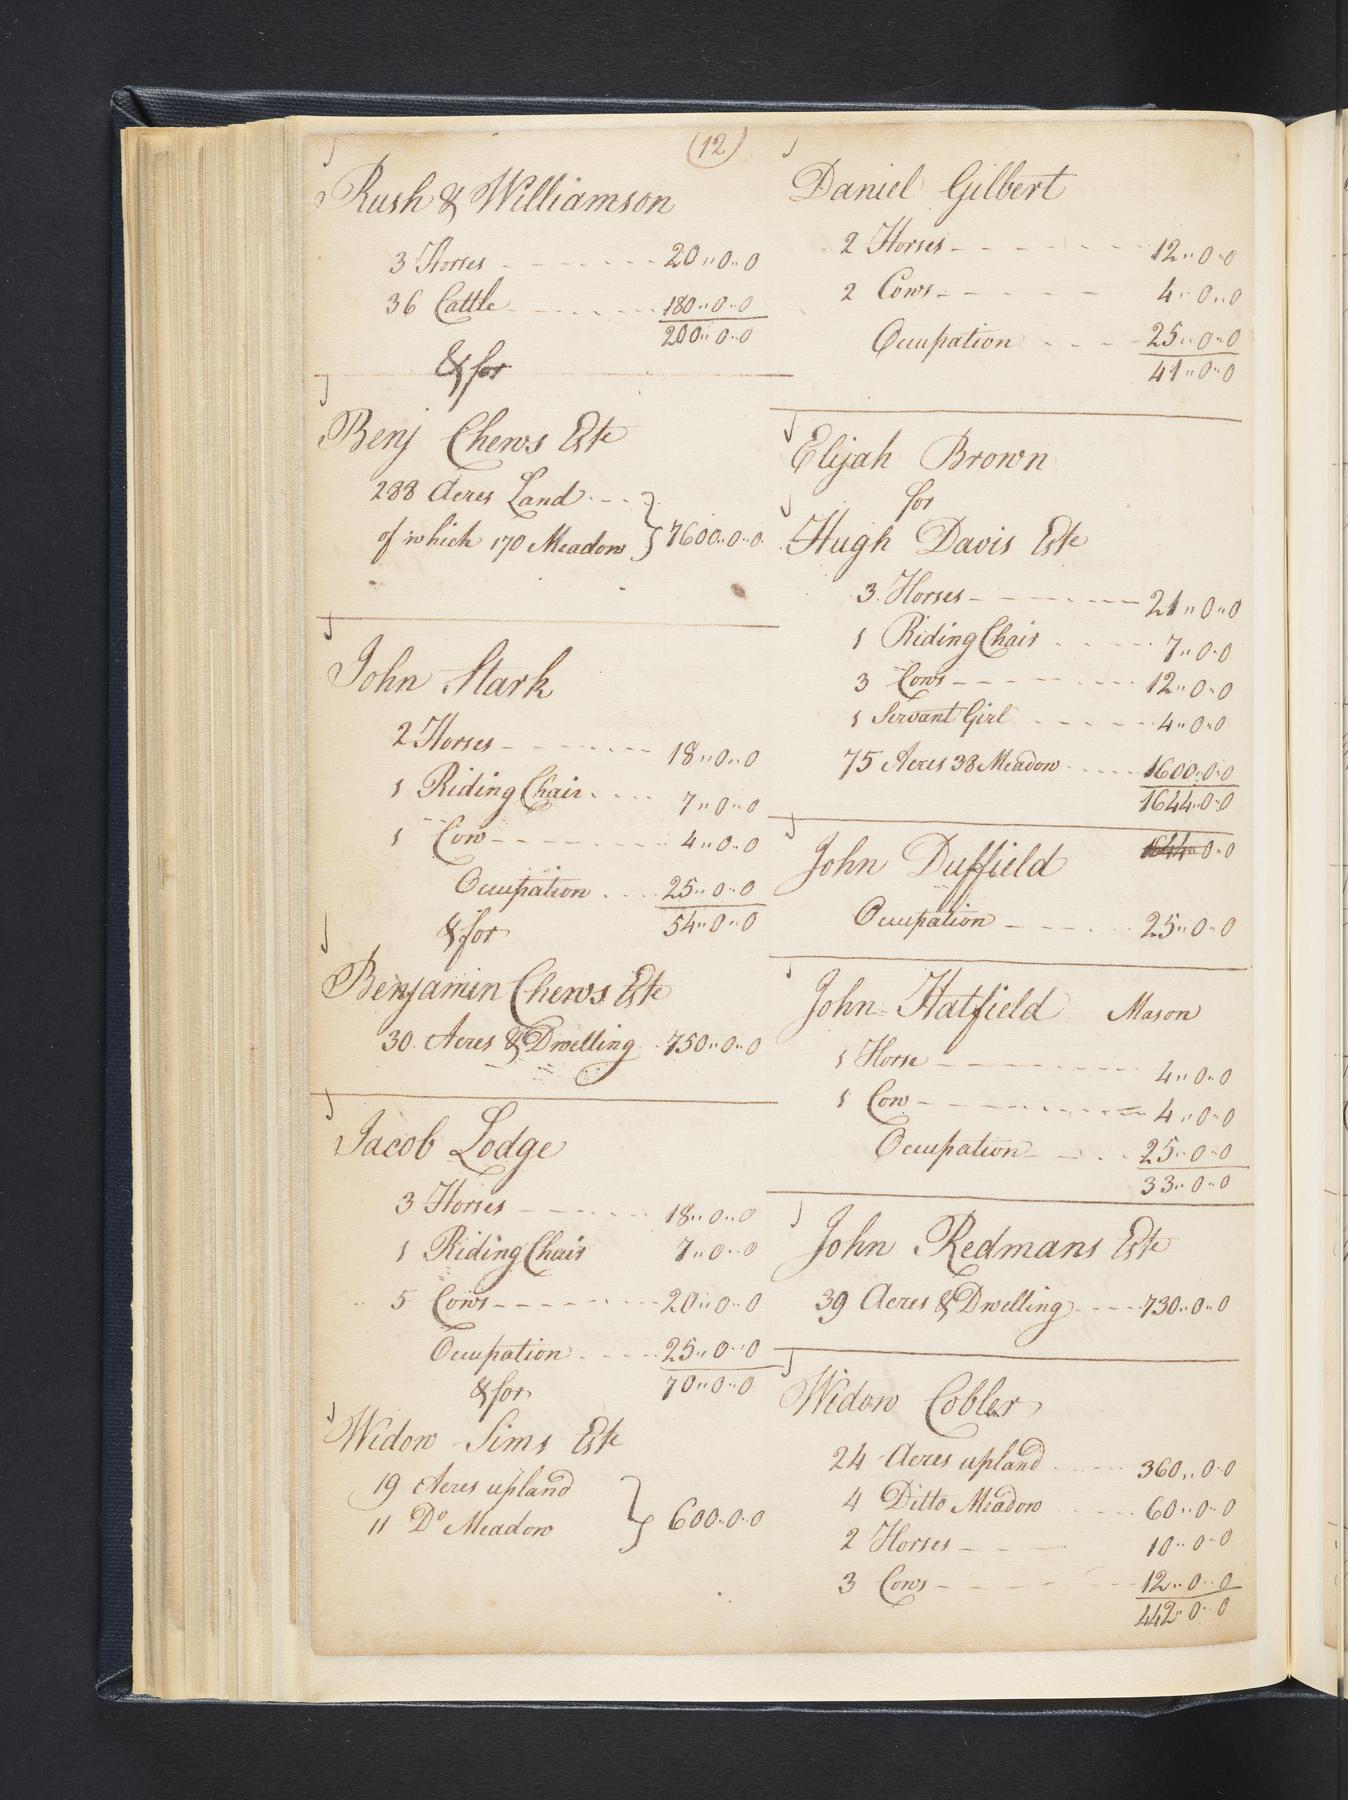 (12)
Rush & Williamson
3 Horses - - - - - - 20..0..0
36 Cattle - - - - - - 180..0..0
200..0..0
& for
Benj Chews Este
288 Acres Land - - -
of which 170 Meadow } 7600..0..0
John Stark
2 Horses - - - - - - 18..0..0
1 Riding Chair - - - - 7..0..0
1 Cow - - - - - - - 4..0..0
Occupation - - - 25..0..0
54..0..0
& for
Benjamin Chews Este
30 Acres & Dwelling 750..0..0
Jacob Lodge
3 Horses - - - - - 18..0..0
1 Riding Chair 7..0..0
5 Cows - - - - - - 20..0..0
Occupation - - - - 25..0..0
& for 70..0..0
Widow Sims Este
19 Acres upland
11 Do Meadow } 600..0..0
Daniel Gilbert
2 Horses - - - - - - 12..0..0
2 Cows - - - - - 4..0..0
Occupation - - - 25..0..0
41..0..0
Elijah Brown
for
Hugh Davis Este
3 Horses - - - - - - 21..0..0
1 Riding Chair - - - - 7..0..0
3 Cows - - - - - - 12..0..0
1 Servant Girl - - - - 4..0..0
75 Acres 38 Meadow - - - - 1600..0..0
1644..0..0
1644..0..0
John Duffield
Occupation - - - - 25..0..0
John Hatfield Mason
1 Horse - - - - - - 4..0..0
1 Cow - - - - - - - 4..0..0
Occupation - - - 25..0..0
33..0..0
John Redmans Este
39 Acres & Dwelling - - - - 730..0..0
Widow Cobler
24 Acres upland - - - - 360..0..0
4 Ditto Meadow - - - 60..0..0
2 Horses - - - 10..0..0
3 Cows - - - - - - 12..0..0
442..0..0